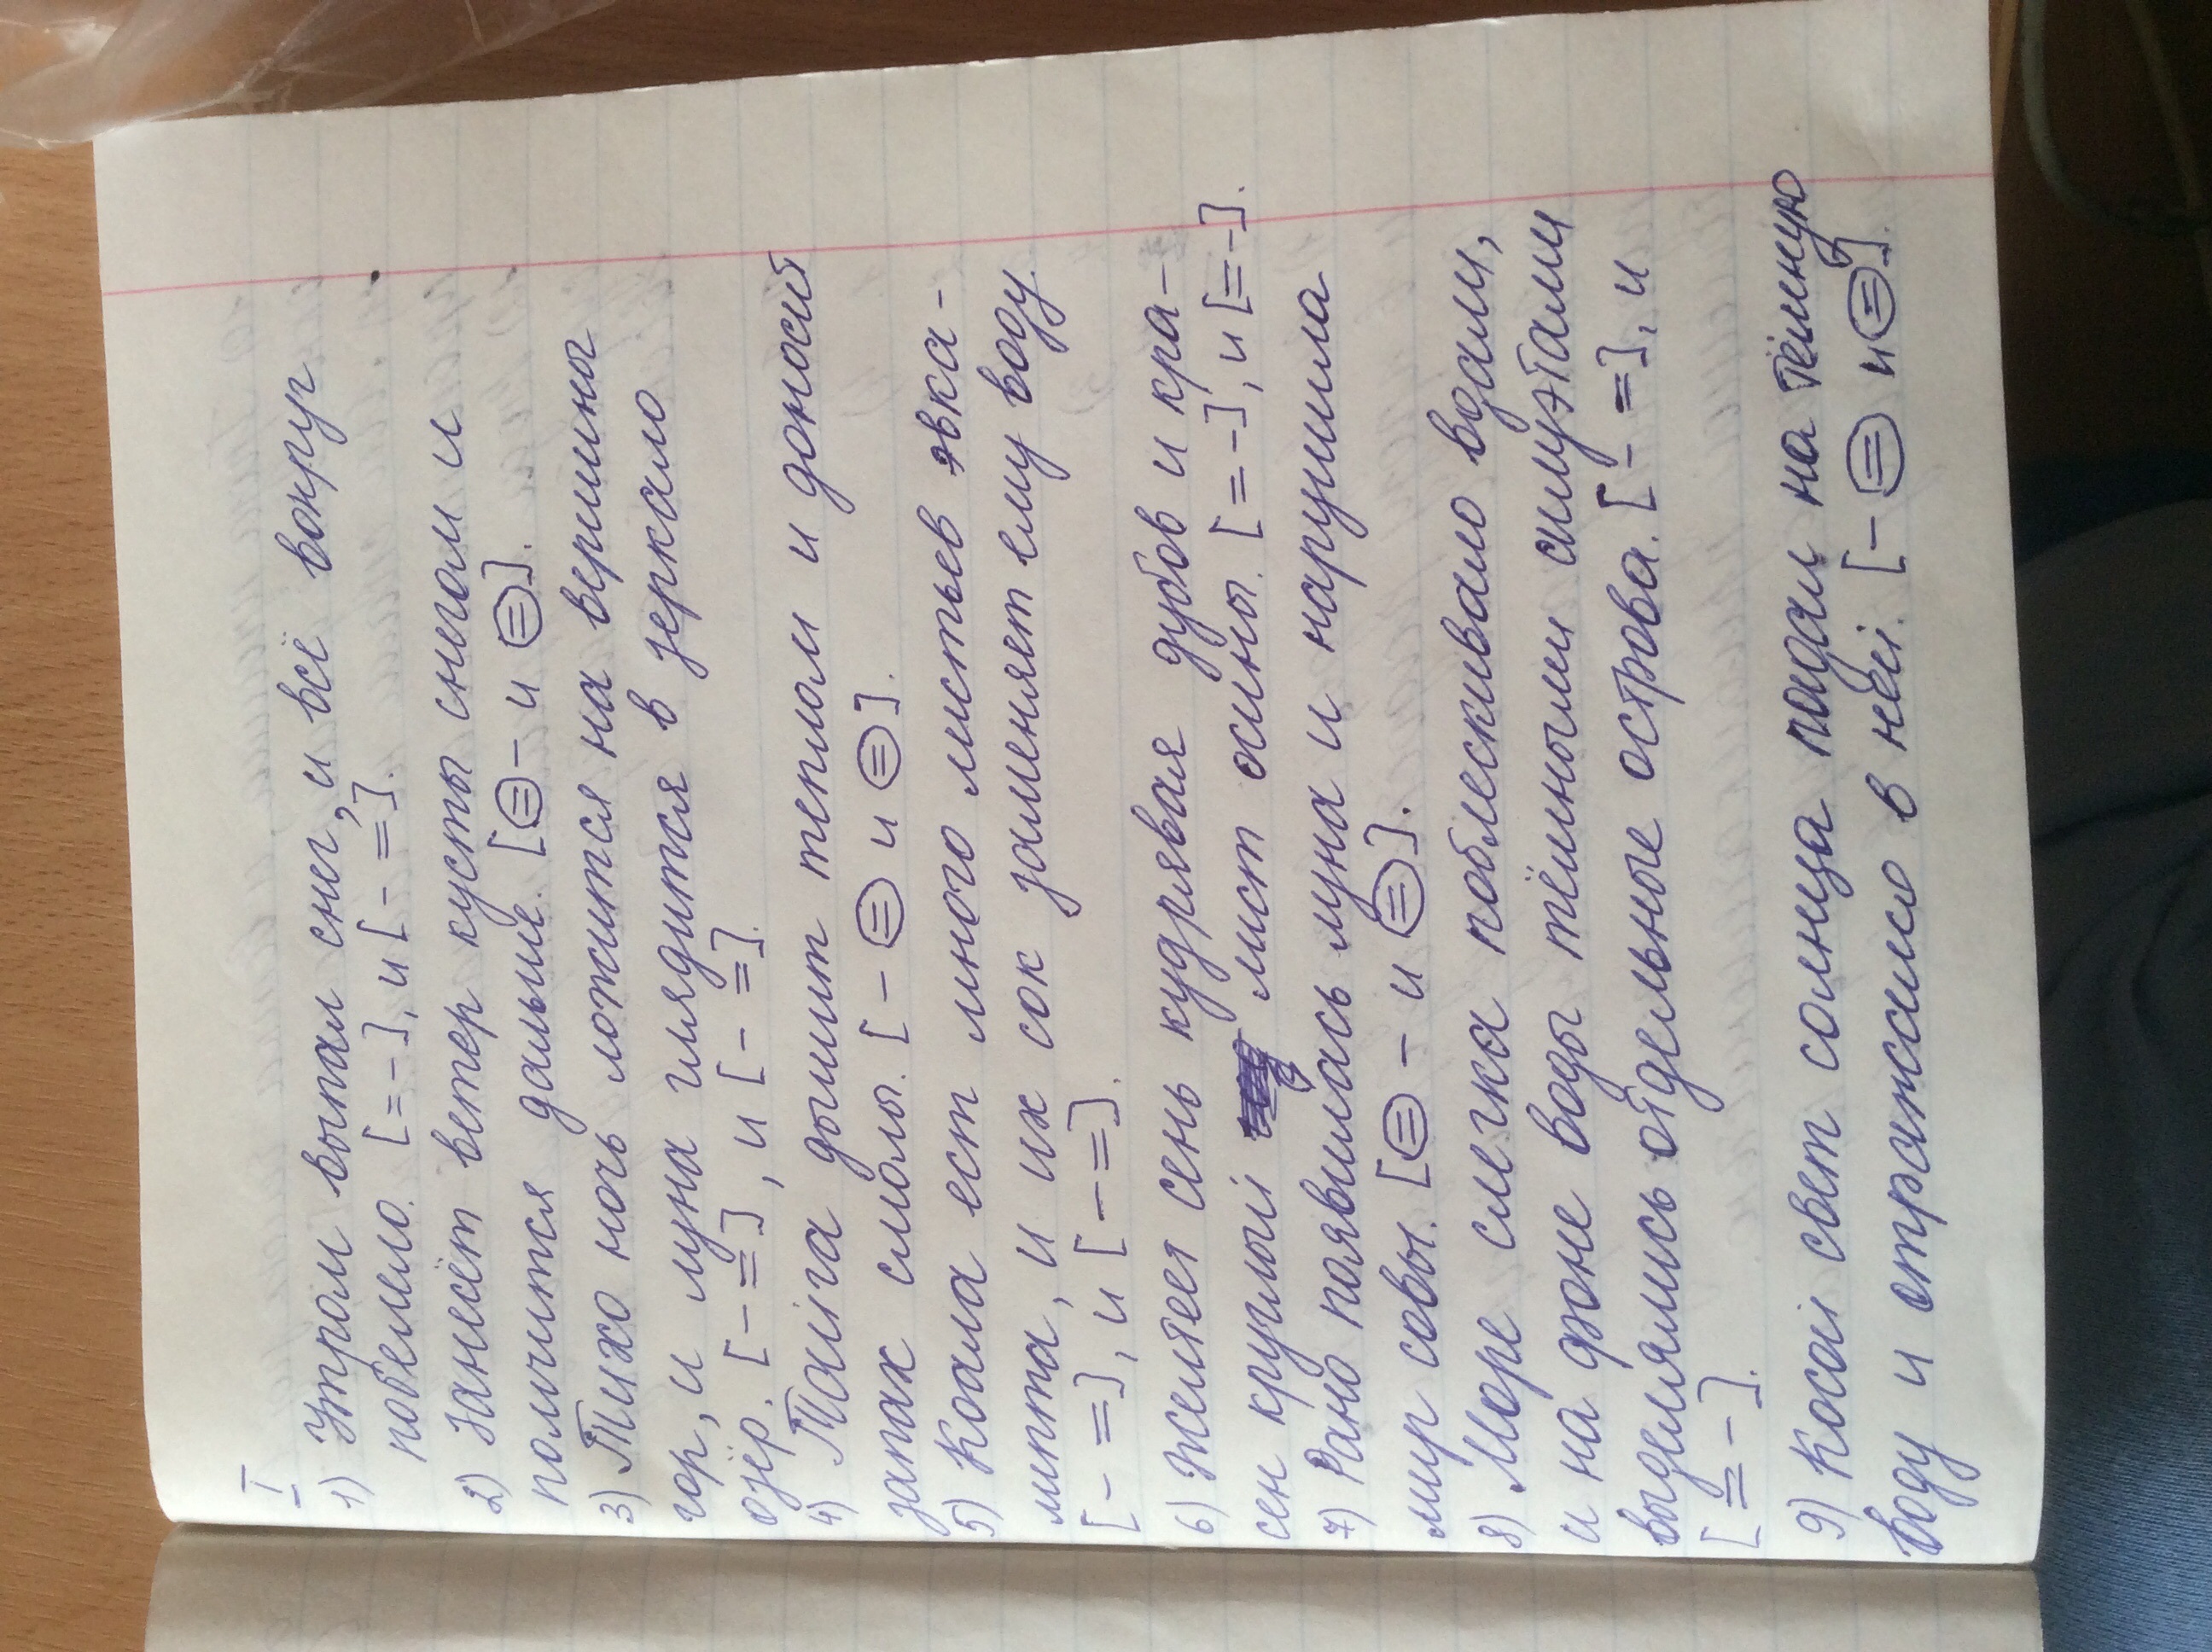 I
1) Утром выпал снег, и всё вокруг
побелело. [= -], и [- =].
2) Занесёт ветер кусты снегом и
получится дальше. [⊜ - и ⊜].
3) Тихо ночь ложится на вершины
гор, и луна глядится в зеркало
озёр. [- =], и [- =].
4) Тайга дышит теплом и доносит
запах смолы. [- ⊜ и ⊜].
5) Коала ест много листьев эвка-
липта, и их сок заменяет ему воду.
[- =], и [- =].
6) Желтеет сень кудрявая дубов и кра-
сен круглый лист осины. [= -], и [= -].
7) Рано появилась луна и нарушила
мир совы. [⊜ - и ⊜].
8) Море слегка поблескивало вдали,
и на фоне воды тёмными силуэтами
выделялись отдельные острова. [- =], и
[= -].
9) Косой свет солнца падал на тёмную
воду и отражало в ней. [- ⊜ и ⊜].